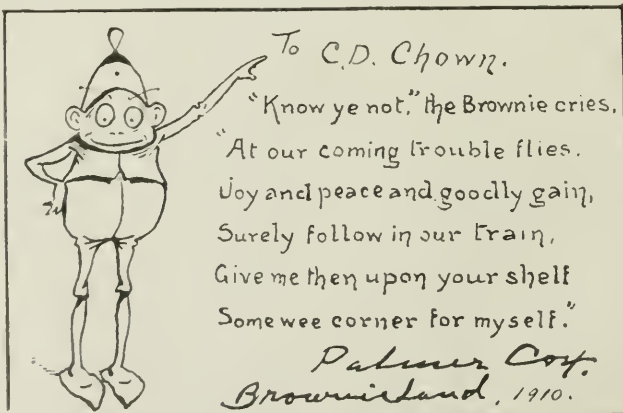 To C.D. Chown.
"Know ye not," the Brownie cries,
"At our coming trouble flies.
Joy and peace and goodly gain,
Surely follow in our train,
Give me then upon your shelf
Some wee corner for myself."
Palmer Cox.
Brownie Land, 1910.